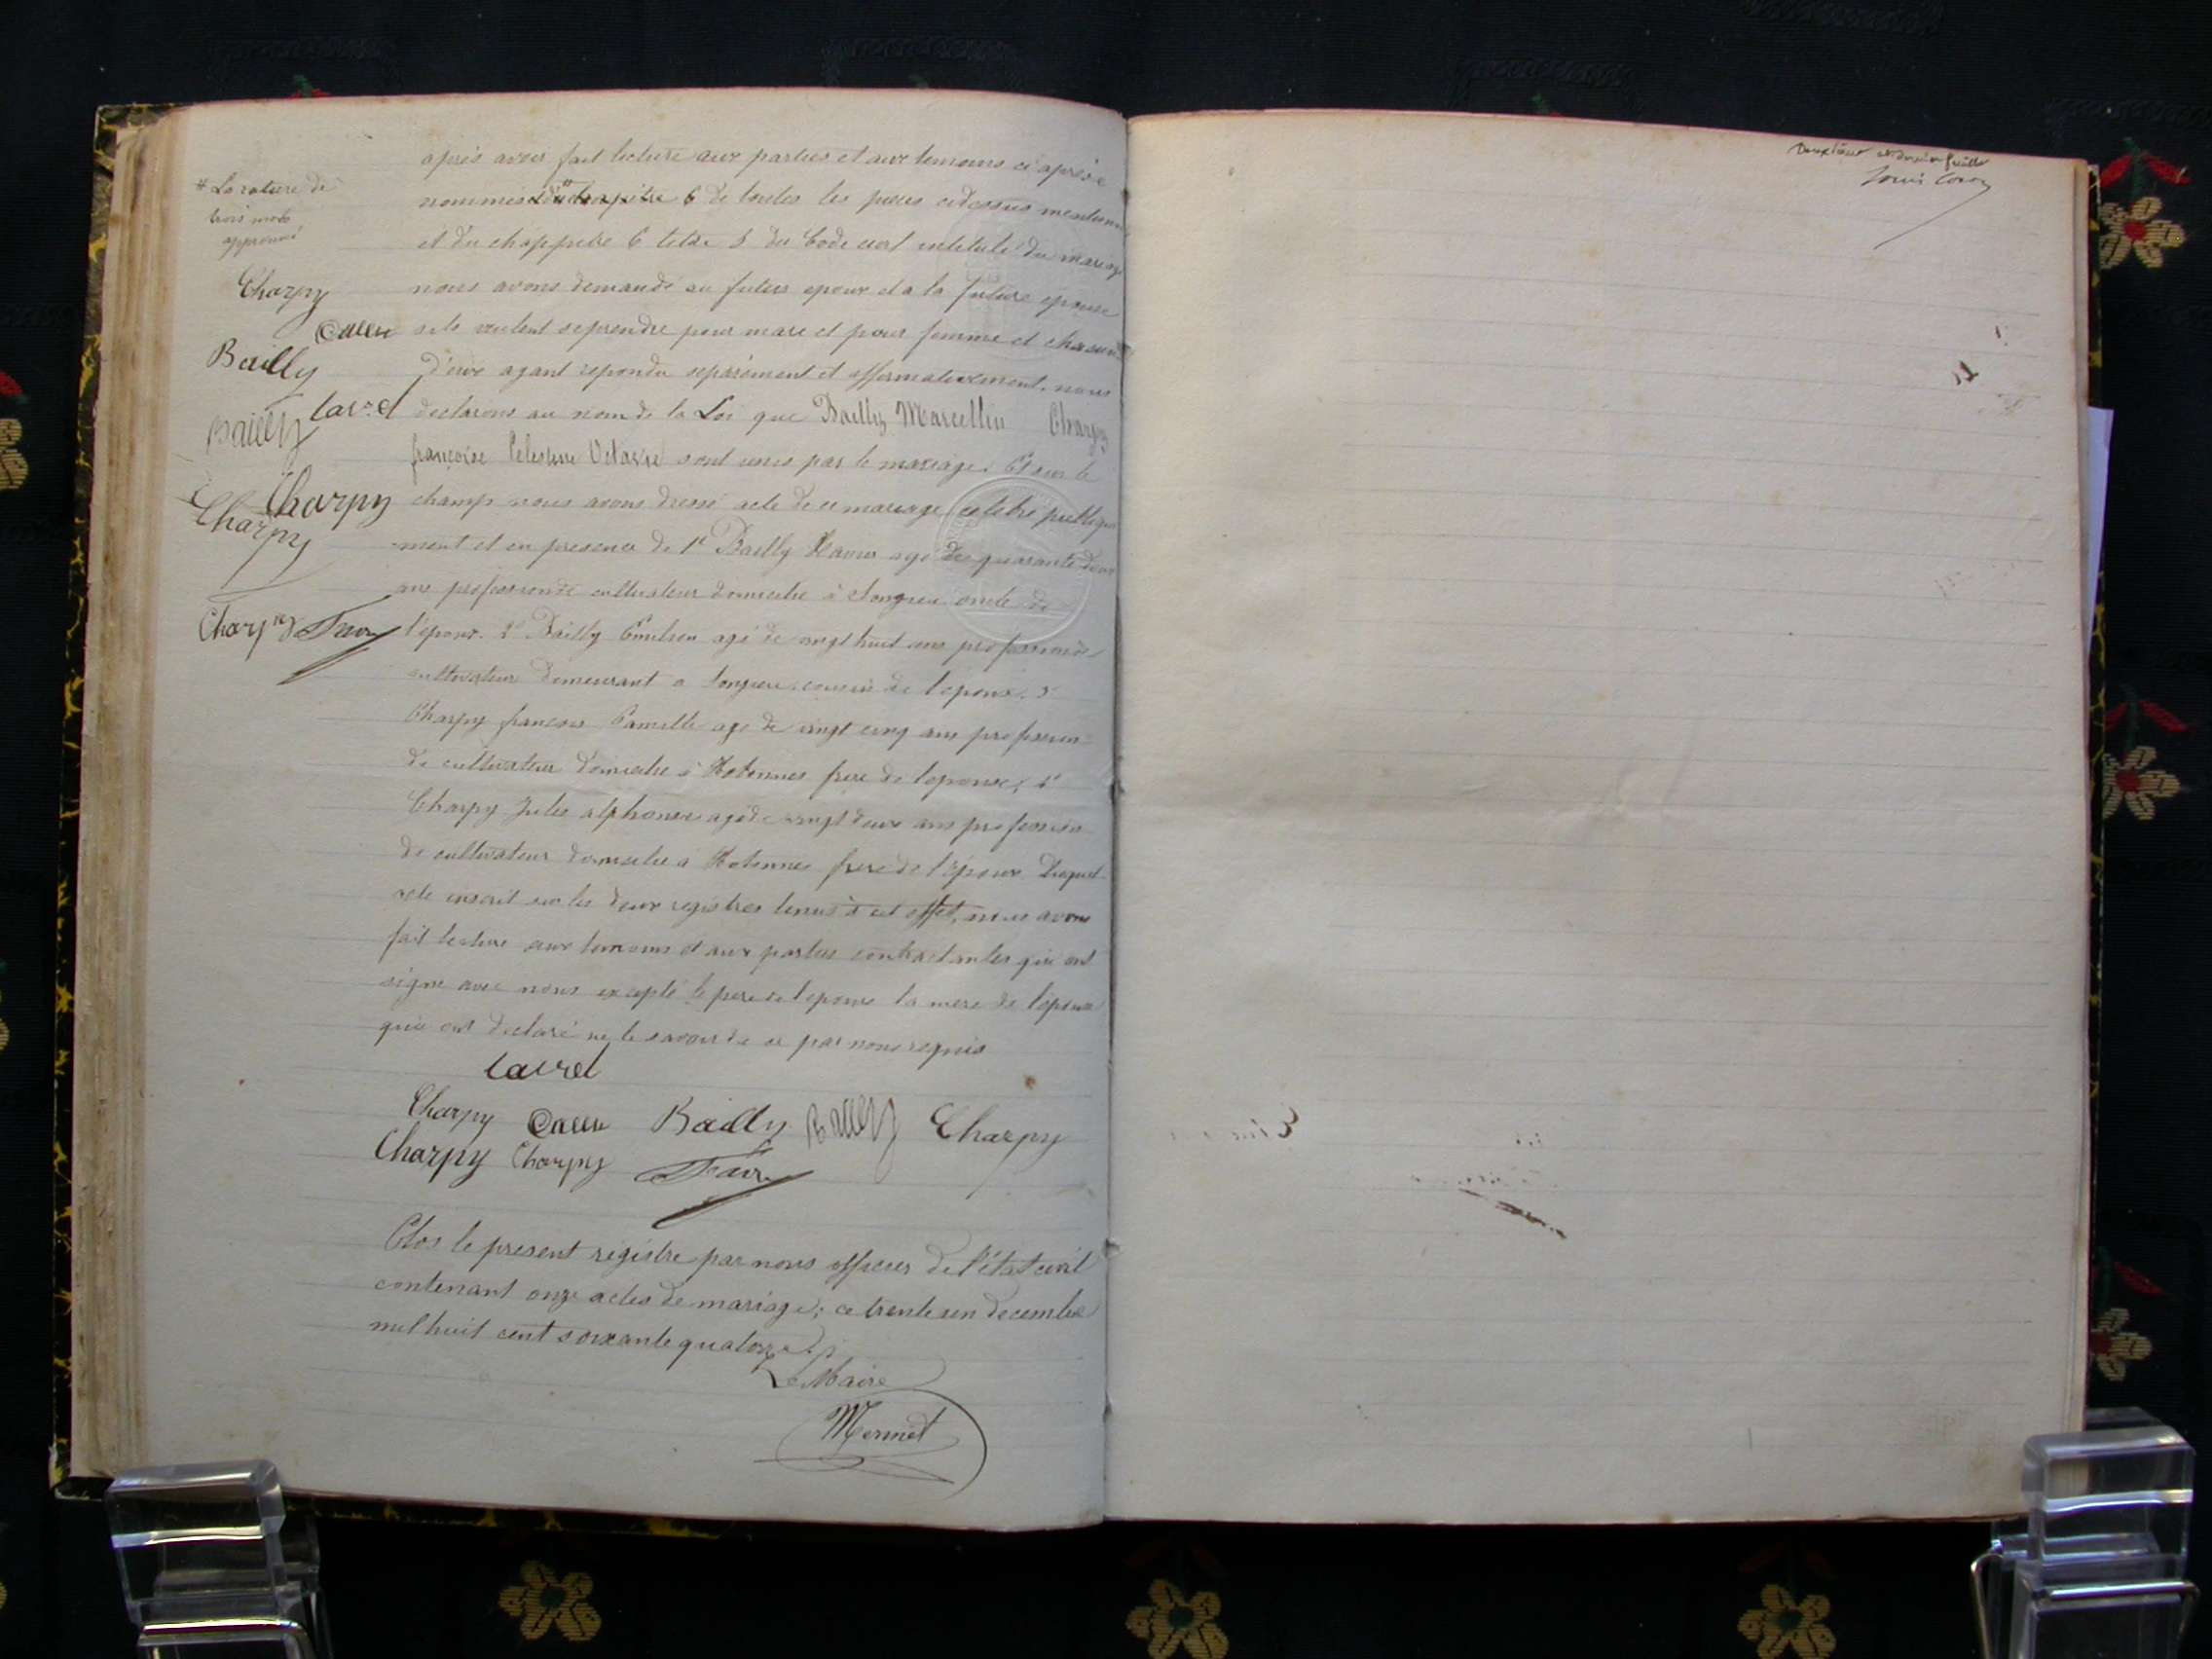 après avoir fait lecture aux parties et aux temoins ci après
nommés du chapitre 6 de toutes les pieces cidessus mentionn
et du chappitre 6 titre 5 du Code civil intitulé du mariage
nous avons demandé au futur epoux et a la future epouse
s'ils veulent se prendre pour mari et pour femme et chacun
d'eux ayant repondu séparément et affirmativement, nous
declarons au nom de la Loi que Bailly Marcellin Charpy
françoise Celestine Octavie sont unis par le mariage. Et sur le
champ nous avons dressé acte de ce mariage celebré publique
ment et en presence de 1° Bailly Xavier agé de quarante deux
ans profession de cultivateur domicilié à Songieu oncle de
l'epoux. 2° Bailly Emilien agé de vingt huit ans profession de
cultivateur demeurant a Songieu cousin de l'epoux. 3°
Charpy françois Camille agé de vingt cinq ans profession
de cultivateur domicilié à Hotonnes frere de l'epouse, 4°
Charpy Jules alphonse agé de vingt deux ans profession
de cultivateur domicilié a Hotonnes frere de l'épouse Duquel
acte inscrit sur les deux registres tenus à cet effet, nous avons
fait lecture aux temoins et aux parties contractantes qui ont
signé avec nous excepté le pere de l'epoux la mere de l'épouse
qui ont declaré ne le savoir de ce par nous requis
# La rature de
trois mots
approuvé
Charpy
Bailly
Bailly
Charpy
Charpy
Charpy
Charpy Bailly Bailly Charpy
Charpy Charpy
Clos le present régistre par nous officier de l'état civil
contenant onze actes de mariage; ce trente un decembre
mil huit cent soixante quatorze
Le Maire
Mermet
Deuxième et dernier feuillet
Louis